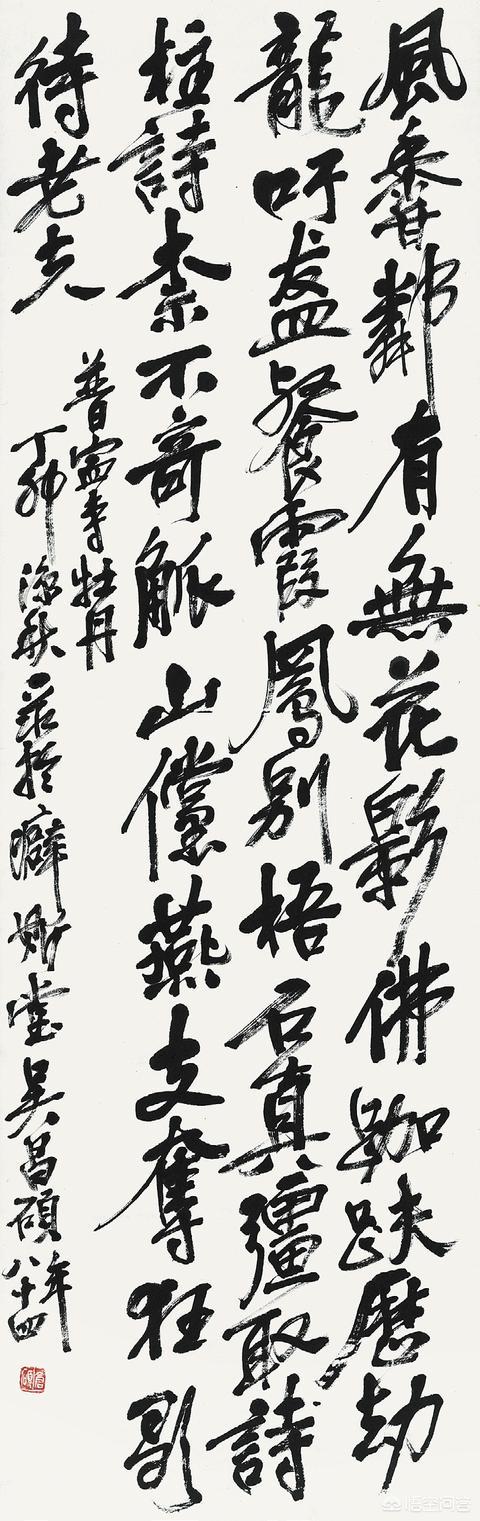 風香鄰有無花影佛跏趺歷劫
龍吁盋餐霞鳳別梧石真彊取詩
柱詩柰不奇觚山儻燕支奪狂歌
待老夫
普寧寺牡丹
丁卯涼秋录於癖斯堂吳昌碩年八十四
悟空问答